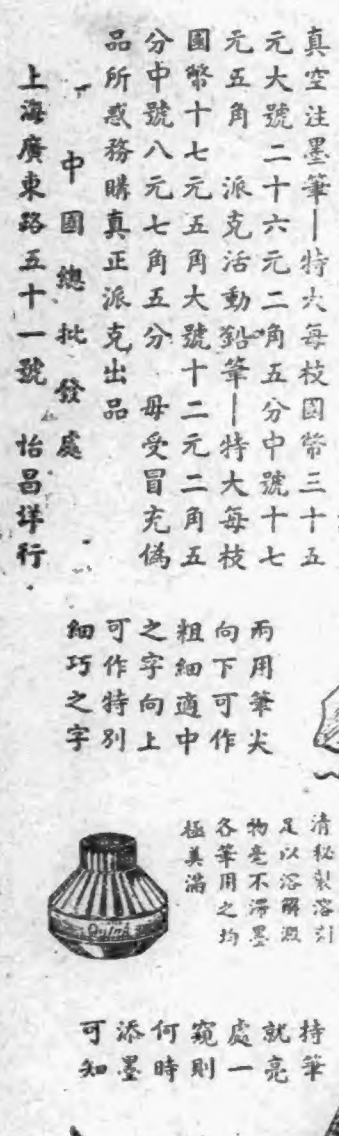 真空注墨筆—特大每枝國幣三十五
元大號二十六元二角五分中號十七
元五角　派克活動鉛筆—特大每枝
國幣十七元五角大號十二元二角五
分中號八元七角五分　毋受冒充偽
品所惑務購真正派克出品
中國總批發處
上海廣東路五十一號　怡昌洋行
兩用筆尖
向下可作
粗細適中
之字向上
可作特別
細巧之字
清秘製溶剂
足以溶解澱
物毫不滯墨
各筆用之均
極美滿
Quink
持筆
就亮
處一
窺則
何時
添墨
可知